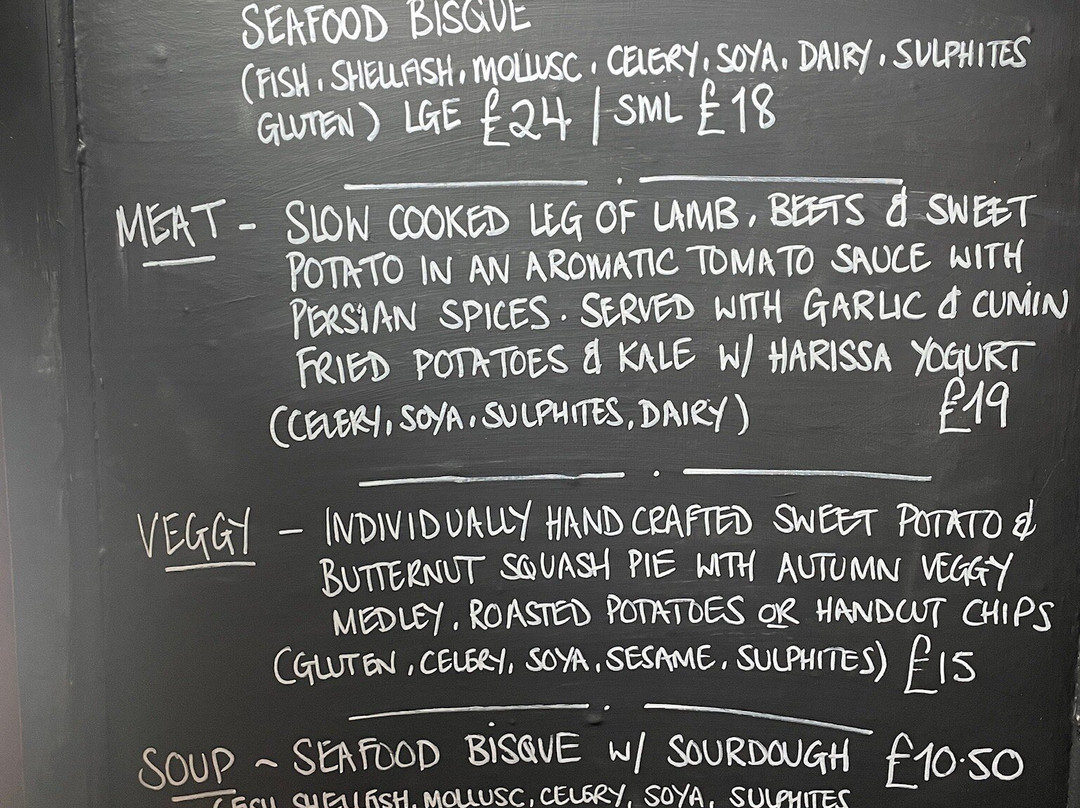 SEAFOOD BISQUE
(FISH, SHELLFISH, MOLLUSC, CELERY, SOYA, DAIRY, SULPHITES
GLUTEN) LGE £24 | SML £18
MEAT - SLOW COOKED LEG OF LAMB, BEETS & SWEET
POTATO IN AN AROMATIC TOMATO SAUCE WITH
PERSIAN SPICES. SERVED WITH GARLIC & CUMIN
FRIED POTATOES & KALE W/ HARISSA YOGURT
(CELERY, SOYA, SULPHITES, DAIRY) £19
VEGGY - INDIVIDUALLY HAND CRAFTED SWEET POTATO &
BUTTERNUT SQUASH PIE WITH AUTUMN VEGGY
MEDLEY, ROASTED POTATOES OR HANDCUT CHIPS
(GLUTEN, CELERY, SOYA, SESAME, SULPHITES) £15
SOUP ~ SEAFOOD BISQUE W/ SOURDOUGH £10.50
(FISH, SHELLFISH, MOLLUSC, CELERY, SOYA, SULPHITES